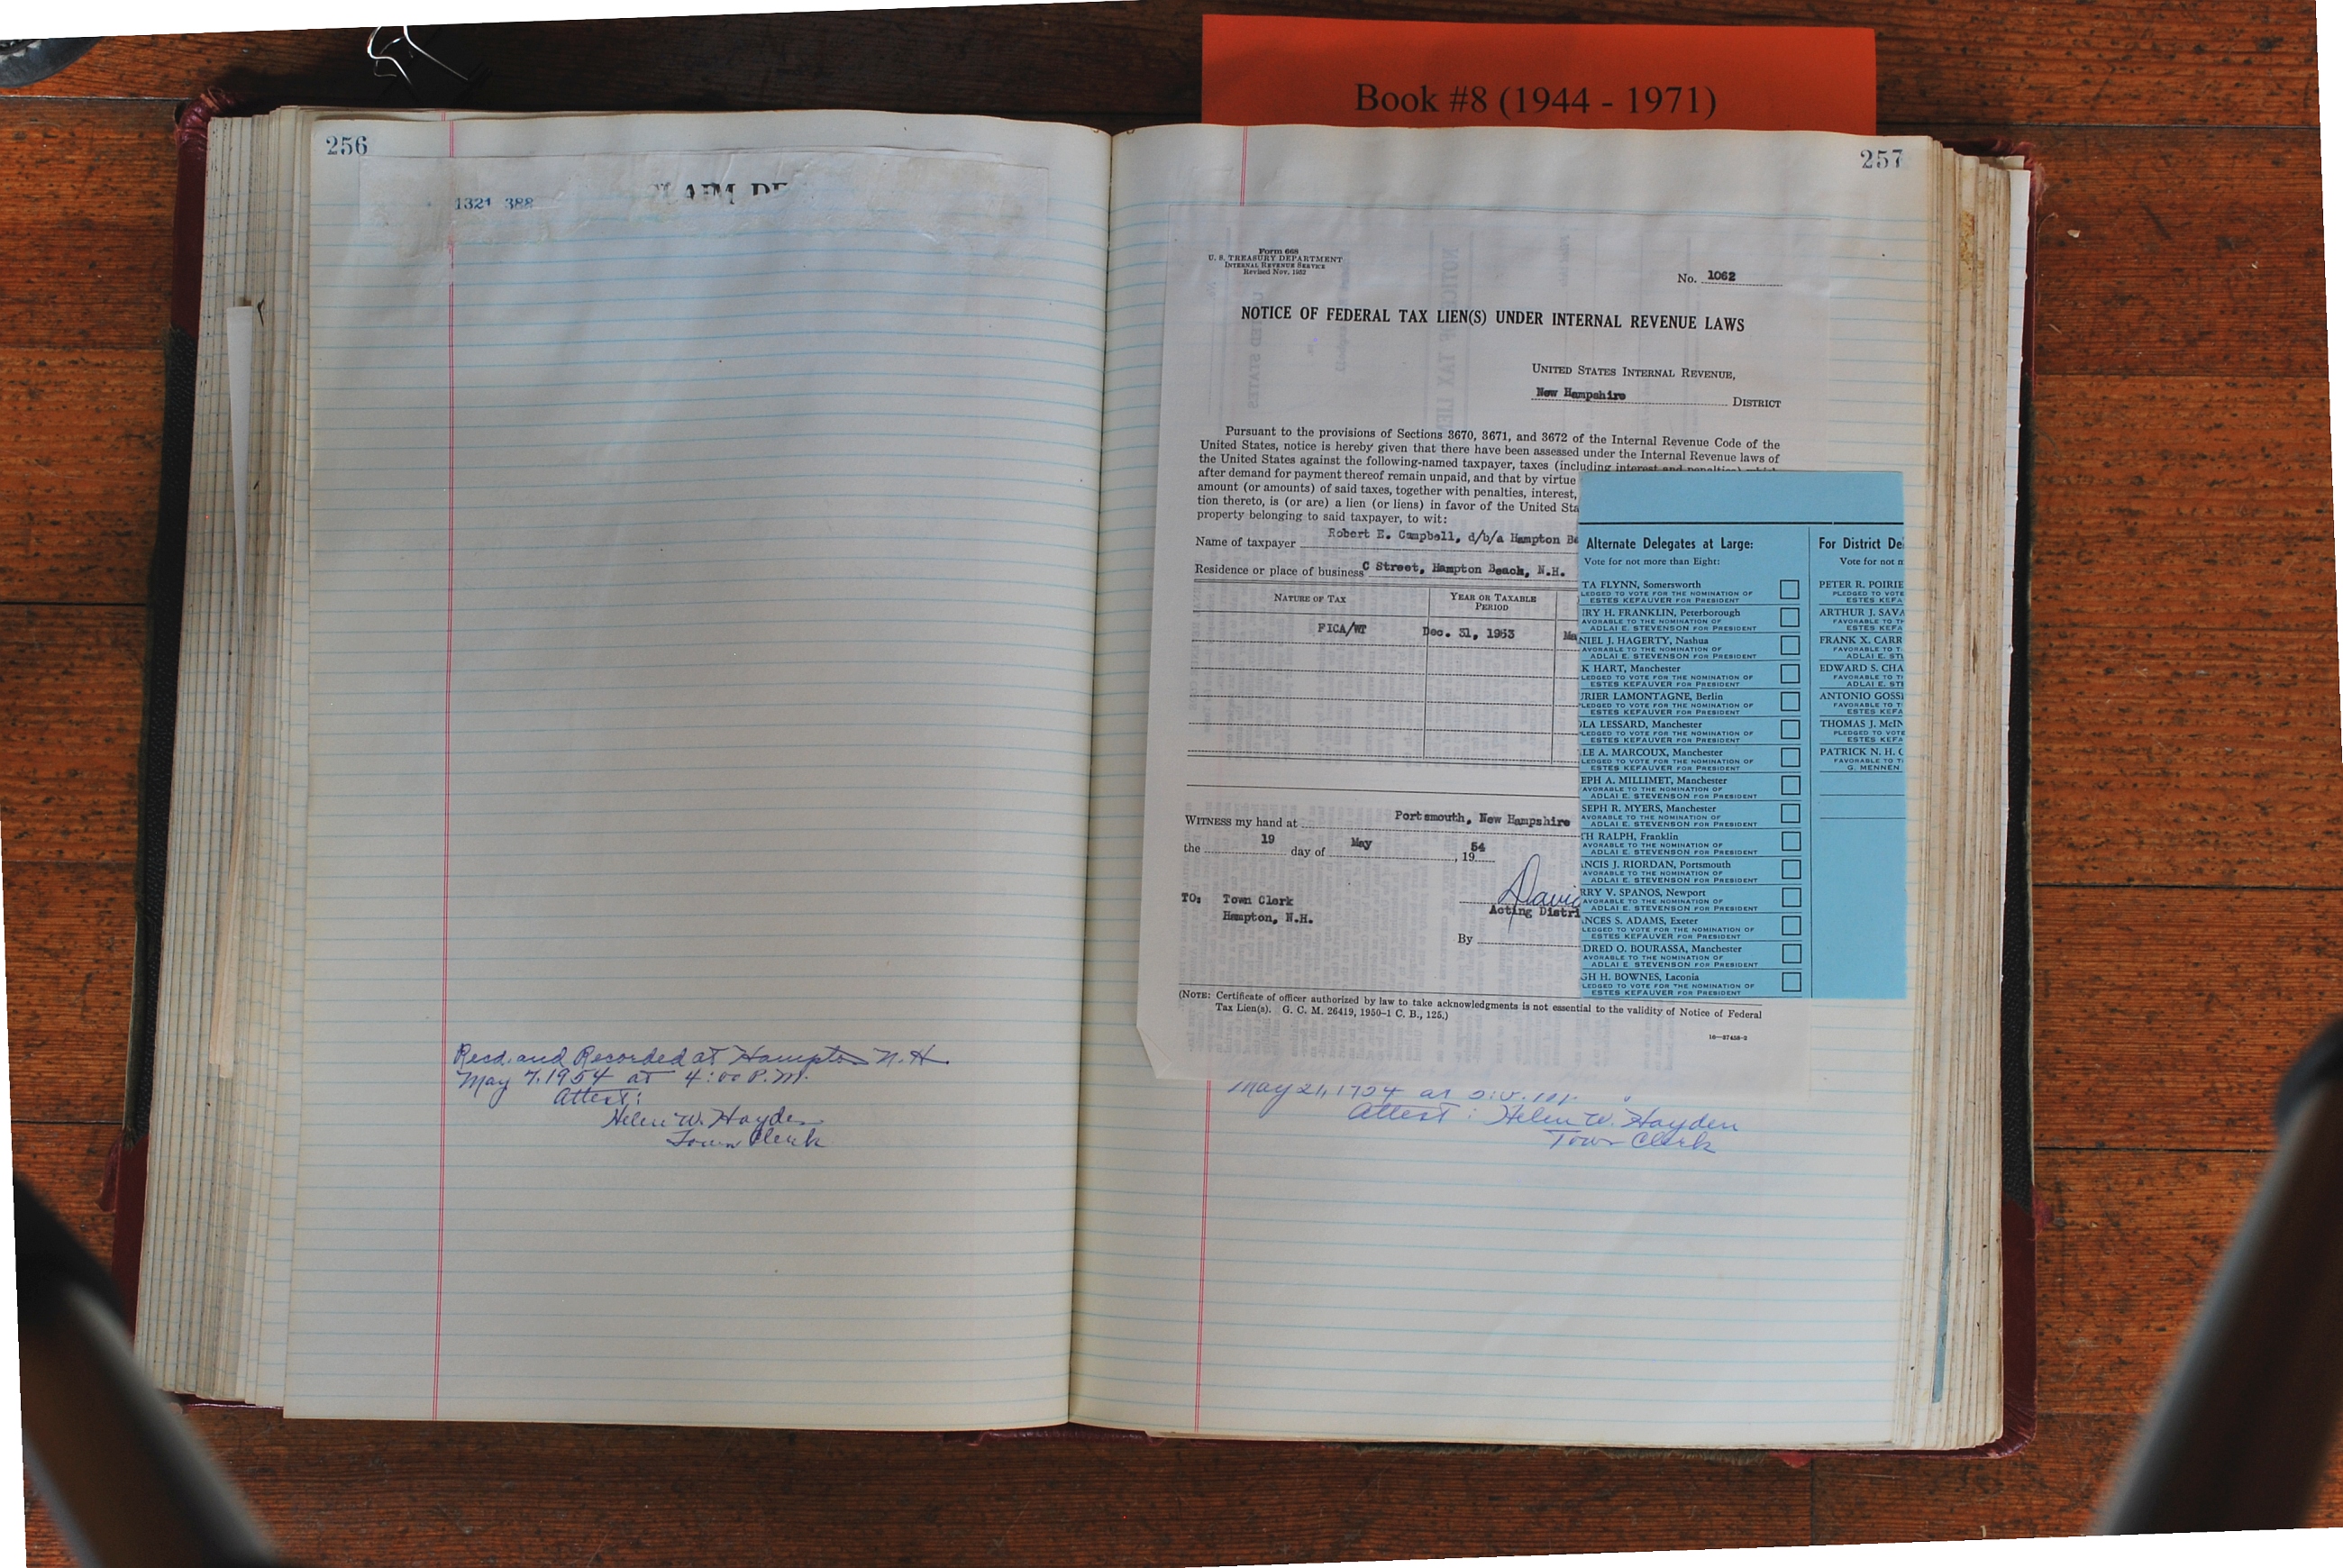 Book #8 (1944 - 1971)
256
1321 388
Recd. and Recorded at Hampton N.H
May 7, 1954 at 4:00 P.M.
Attest:
Helen W. Hayden
Town Clerk
257
Form 668
U. S. TREASURY DEPARTMENT
INTERNAL REVENUE SERVICE
Revised Nov. 1952
No. 1062
NOTICE OF FEDERAL TAX LIEN(S) UNDER INTERNAL REVENUE LAWS
UNITED STATES INTERNAL REVENUE,
New Hampshire DISTRICT
Pursuant to the provisions of Sections 3670, 3671, and 3672 of the Internal Revenue Code of the
United States, notice is hereby given that there have been assessed under the Internal Revenue laws of
the United States against the following-named taxpayer, taxes (including interest and penalties) which
after demand for payment thereof remain unpaid, and that by virtue
amount (or amounts) of said taxes, together with penalties, interest,
tion thereto, is (or are) a lien (or liens) in favor of the United Sta
property belonging to said taxpayer, to wit:
Name of taxpayer Robert E. Campbell, d/b/a Hampton Be
Residence or place of business C Street, Hampton Beach, N.H.
NATURE OF TAX YEAR OR TAXABLE
PERIOD
FICA/WT Dec. 31, 1953 Ma
WITNESS my hand at Portsmouth, New Hampshire
the 19 day of May , 19 54
TO: Town Clerk
Hampton, N.H.
David
Acting Distri
By
(NOTE: Certificate of officer authorized by law to take acknowledgments is not essential to the validity of Notice of Federal
Tax Lien(s). G. C. M. 26419, 1950-1 C. B., 125.)
16—67458-2
May 21, 1954 at
Attest: Helen W. Hayden
Town Clerk
Alternate Delegates at Large:
Vote for not more than Eight:
TA FLYNN, Somersworth
LEDGED TO VOTE FOR THE NOMINATION OF
ESTES KEFAUVER FOR PRESIDENT
RY H. FRANKLIN, Peterborough
AVORABLE TO THE NOMINATION OF
ADLAI E. STEVENSON FOR PRESIDENT
NIEL J. HAGERTY, Nashua
AVORABLE TO THE NOMINATION OF
ADLAI E. STEVENSON FOR PRESIDENT
K HART, Manchester
LEDGED TO VOTE FOR THE NOMINATION OF
ESTES KEFAUVER FOR PRESIDENT
RIER LAMONTAGNE, Berlin
LEDGED TO VOTE FOR THE NOMINATION OF
ESTES KEFAUVER FOR PRESIDENT
LA LESSARD, Manchester
LEDGED TO VOTE FOR THE NOMINATION OF
ESTES KEFAUVER FOR PRESIDENT
LE A. MARCOUX, Manchester
LEDGED TO VOTE FOR THE NOMINATION OF
ESTES KEFAUVER FOR PRESIDENT
EPH A. MILLIMET, Manchester
AVORABLE TO THE NOMINATION OF
ADLAI E. STEVENSON FOR PRESIDENT
SEPH R. MYERS, Manchester
AVORABLE TO THE NOMINATION OF
ADLAI E. STEVENSON FOR PRESIDENT
TH RALPH, Franklin
AVORABLE TO THE NOMINATION OF
ADLAI E. STEVENSON FOR PRESIDENT
NCIS J. RIORDAN, Portsmouth
AVORABLE TO THE NOMINATION OF
ADLAI E. STEVENSON FOR PRESIDENT
RRY V. SPANOS, Newport
AVORABLE TO THE NOMINATION OF
ADLAI E. STEVENSON FOR PRESIDENT
NCES S. ADAMS, Exeter
LEDGED TO VOTE FOR THE NOMINATION OF
ESTES KEFAUVER FOR PRESIDENT
DRED O. BOURASSA, Manchester
AVORABLE TO THE NOMINATION OF
ADLAI E. STEVENSON FOR PRESIDENT
GH H. BOWNES, Laconia
LEDGED TO VOTE FOR THE NOMINATION OF
ESTES KEFAUVER FOR PRESIDENT
For District De
Vote for not m
PETER R. POIRIE
PLEDGED TO VOTE
ESTES KEFA
ARTHUR J. SAVA
FAVORABLE TO TH
ESTES KEFA
FRANK X. CARR
FAVORABLE TO T
ADLAI E. STI
EDWARD S. CHA
FAVORABLE TO T
ADLAI E. STE
ANTONIO GOSS
FAVORABLE TO T
ESTES KEFA
THOMAS J. McIN
PLEDGED TO VOTE
ESTES KEFA
PATRICK N. H. C
FAVORABLE TO T
G. MENNEN